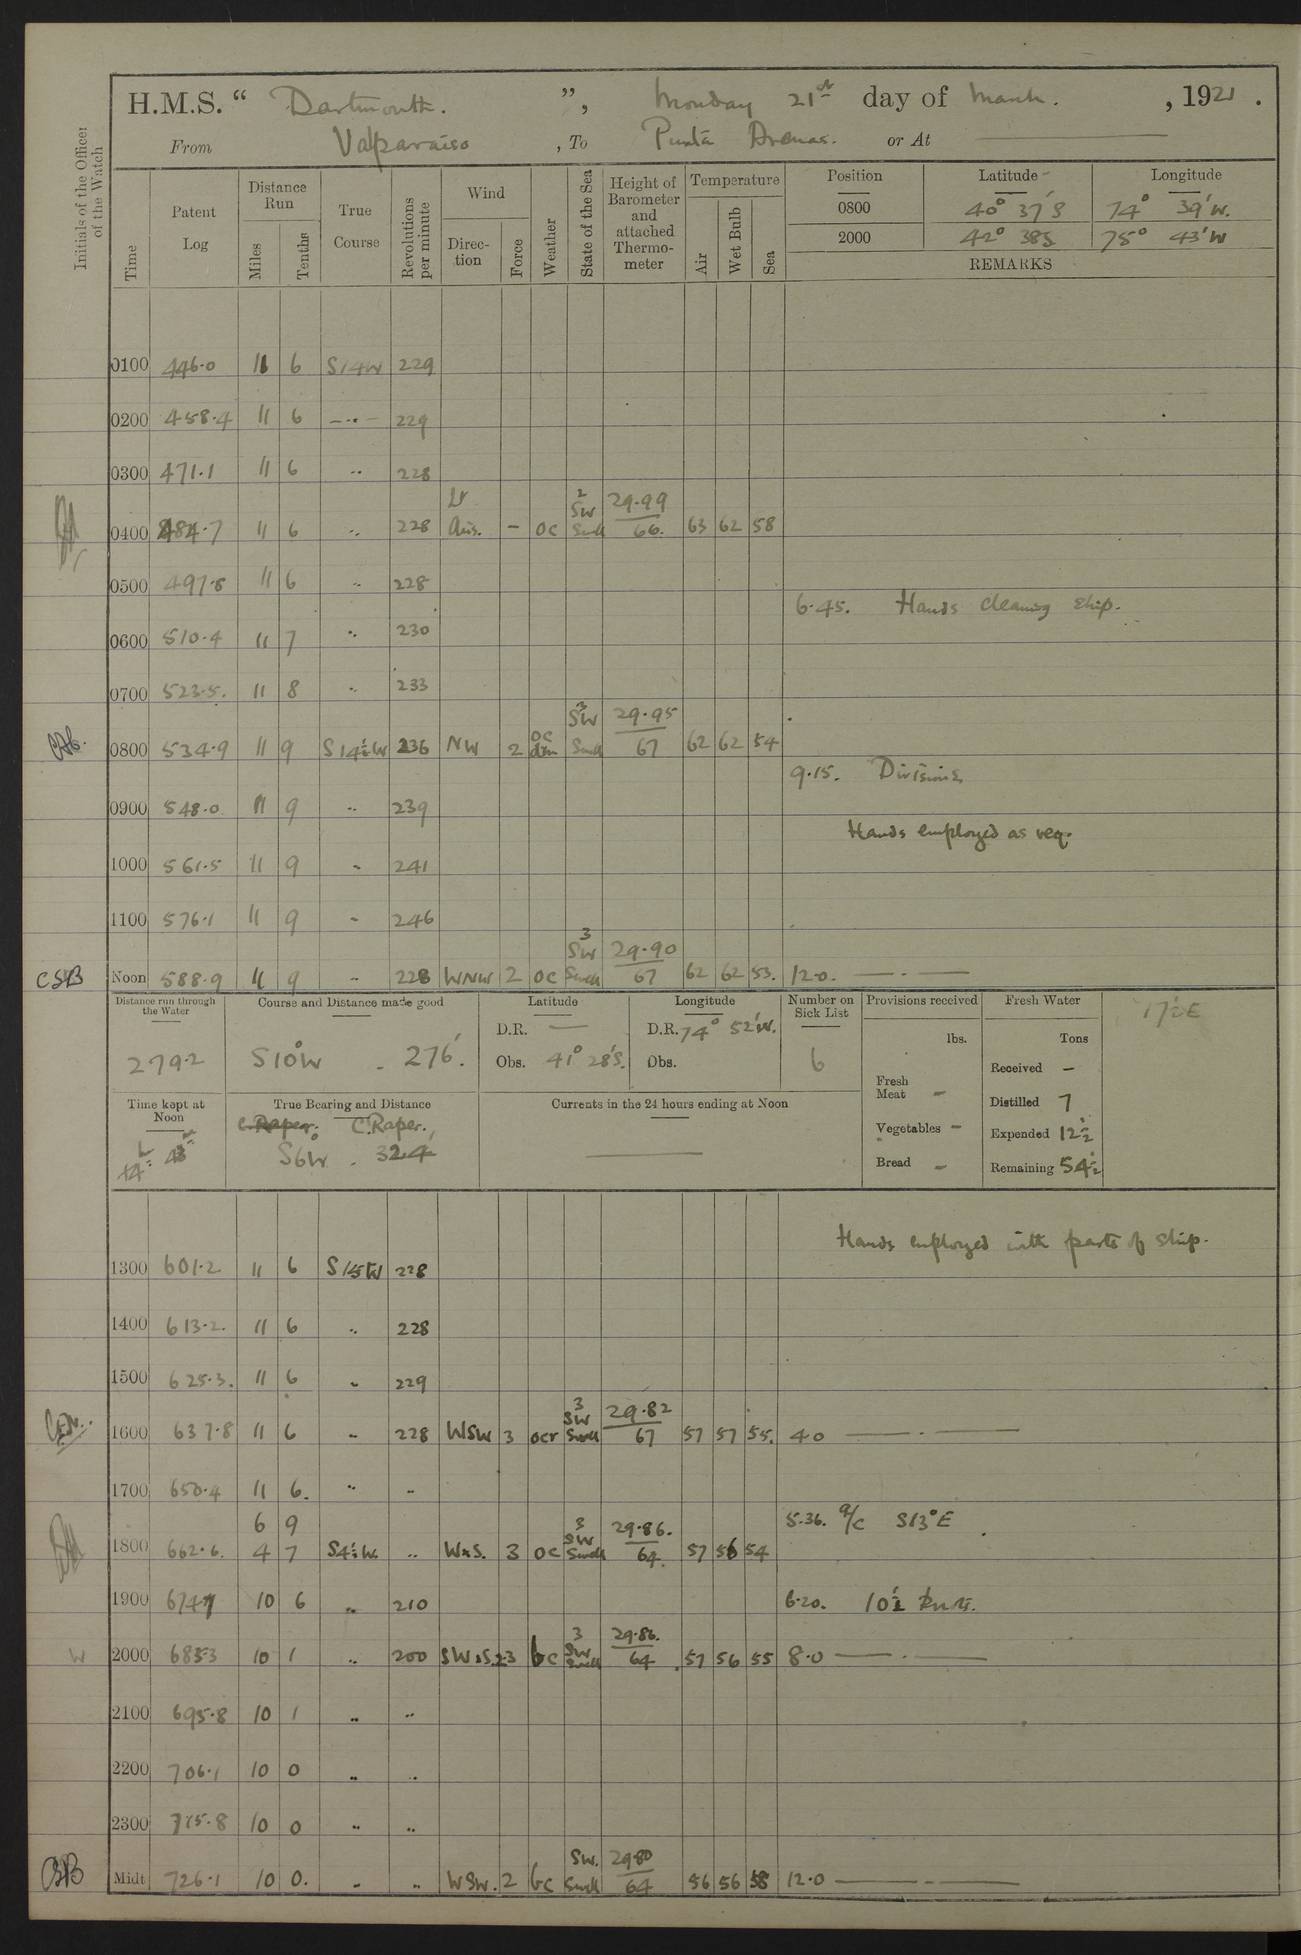 H.M.S. “ Dartmouth. ”, Monday 21st day of March. , 1921 .
From Valparaiso , To Punta Arenas. or At —
Initials of the Officer of the Watch
Time Patent Log Distance Run Miles Tenths True Course Revolutions per minute Wind Direction Force Weather State of the Sea Height of Barometer and attached Thermometer Temperature Air Wet Bulb Sea Position Latitude Longitude
0800 40° 37' S 74° 39' W.
2000 42° 38 S 75° 43' W
REMARKS
0100 446.0 11 6 S14W 229
0200 458.4 11 6 — .. — 229
0300 471.1 11 6 .. 228
0400 484.7 11 6 .. 228 Lt Airs. – oc 2 SW Swell 29.99 66. 63 62 58
0500 497.8 11 6 .. 228
6.45. Hands cleaning ship.
0600 510.4 11 7 .. 230
0700 523.5. 11 8 .. 233
0800 534.9 11 9 S14½W 236 NW 2 oc 3 SW Swell 29.95 67 62 62 54
9.15. Divisions
0900 548.0 11 9 .. 239
Hands employed as req.
1000 561.5 11 9 .. 241
1100 576.1 11 9 .. 246
CSB Noon 588.9 11 9 .. 228 WNW 2 oc 3 SW Swell 29.90 67 62 62 53. 12.0. — . —
Distance run through the Water Course and Distance made good Latitude Longitude Number on Sick List Provisions received Fresh Water
279.2 S10°W . 276'. D.R. — Obs. 41° 28'S. D.R. 74° 52'W. Obs. 6 lbs. Tons 17½E
Fresh Meat – Vegetables – Bread –
Received – Distilled 7 Expended 12½ Remaining 54½
Time kept at Noon True Bearing and Distance Currents in the 24 hours ending at Noon
C. Raper. C. Raper.
S6°W . 324' —
Hands employed with parts of ship.
1300 601.2 11 6 S15W 228
1400 613.2. 11 6 .. 228
1500 625.3. 11 6 .. 229
1600 637.8 11 6 .. 228 WSW 3 ocr 3 SW Swell 29.82 67 57 57 55. 4.0 — . —
1700 650.4 11 6. .. ..
6 9 5.36. a/c S13°E
1800 662.6. 4 7 S4½W. .. WxS. 3 oc 3 SW Swell 29.86. 64. 57 56 54
1900 674.7 10 6 .. 210 6.20. 10½ Knts.
2000 685.3 10 1 .. 200 SWxS. 2.3 bc 3 SW Swell 29.86. 64 57 56 55 8.0 — . —
2100 695.8 10 1 .. ..
2200 706.1 10 0 .. ..
2300 715.8 10 0 .. ..
CSB Midt 726.1 10 0. .. .. WSW. 2 bc SW. Swell 29.80 64 56 56 58 12.0 — . —